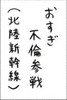 おすぎ
不倫参戦
（北陸新幹線）